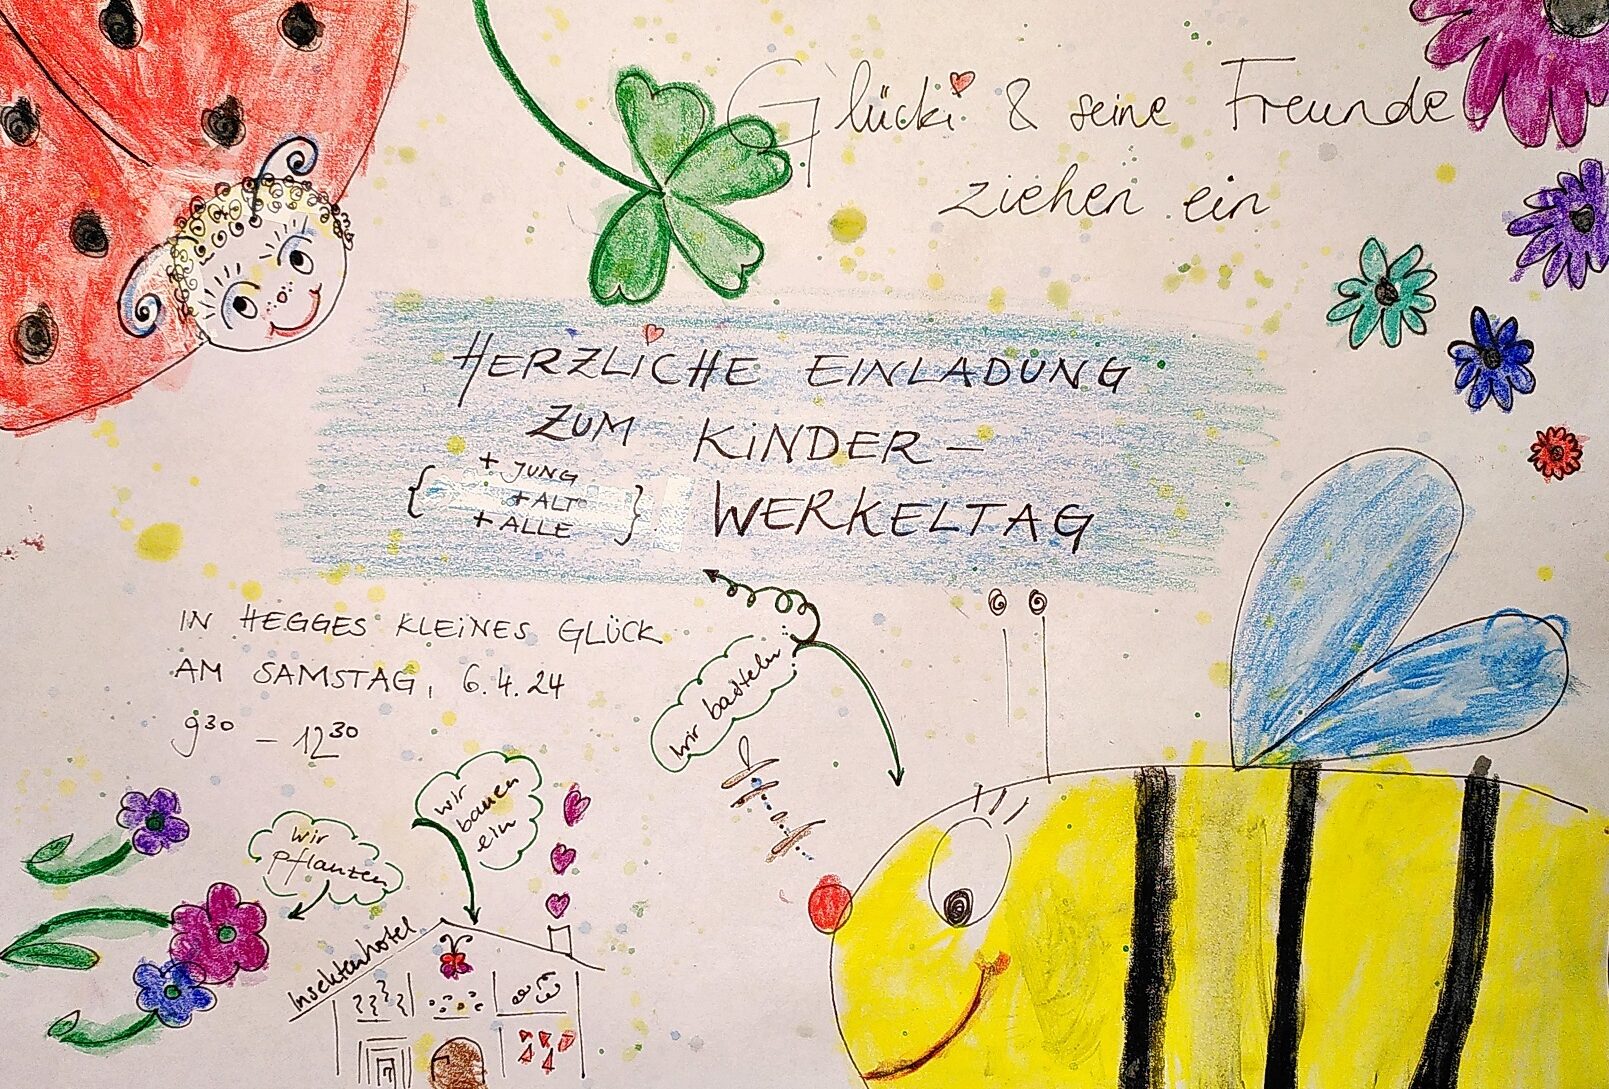 Glücki & seine Freunde
ziehen ein
HERZLICHE EINLADUNG
ZUM KINDER-
{ + JUNG
+ ALT
+ ALLE }
WERKELTAG
IN HEGGES KLEINES GLÜCK
AM SAMSTAG, 6.4.24
9³⁰ - 12³⁰
wir basteln
wir
bauen
ein
wir
pflanzen
Insektenhotel